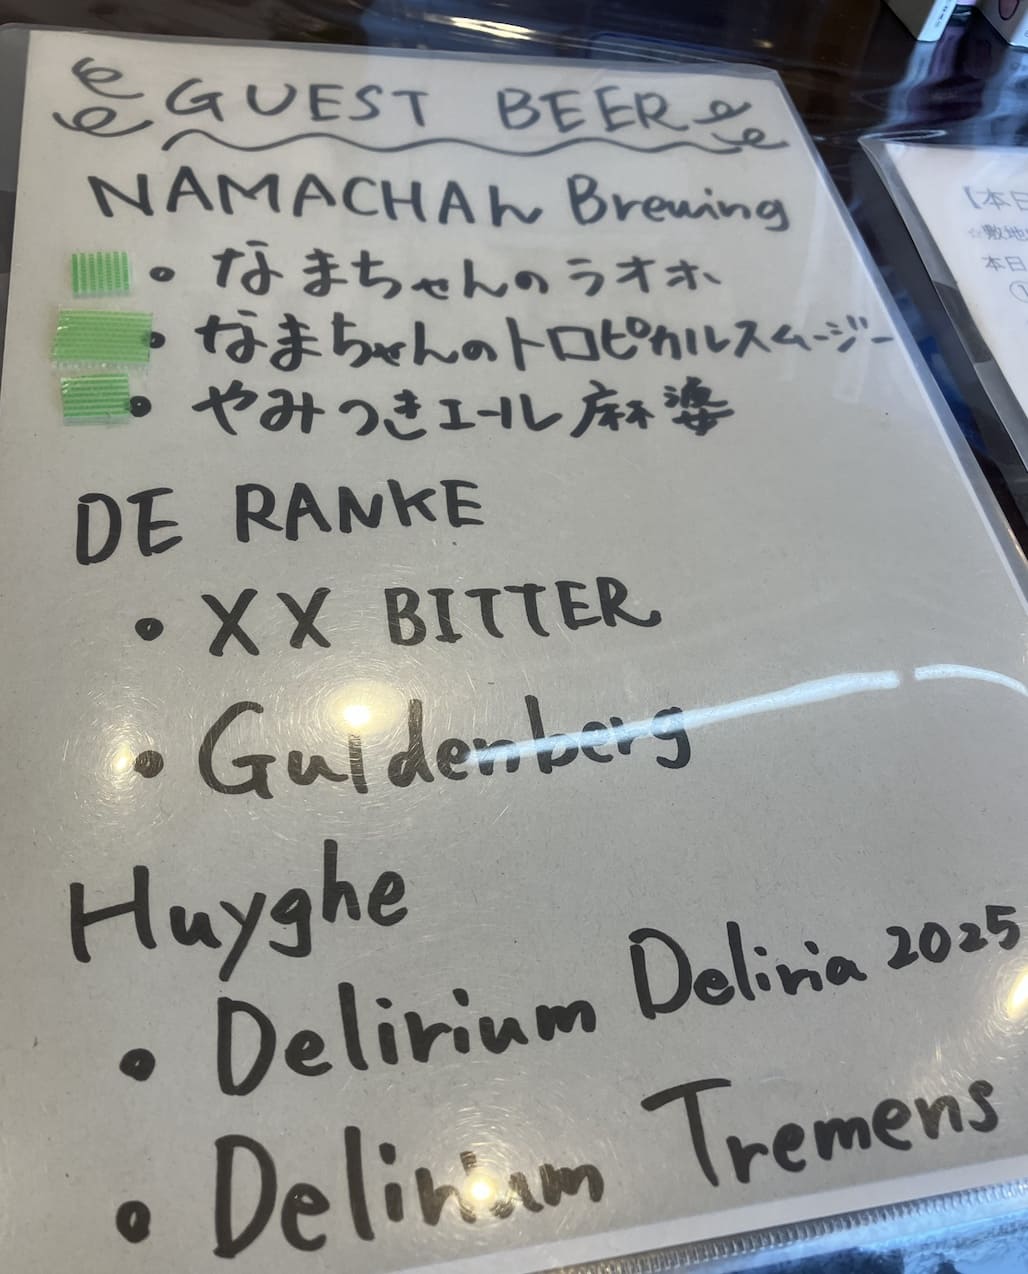 GUEST BEER
NAMACHAん Brewing
• なまちゃんのラオホ
• なまちゃんのトロピカルスムージー
• やみつきエール麻婆
DE RANKE
• XX BITTER
• Guldenberg
Huyghe
• Delirium Deliria 2025
• Delirium Tremens
【本日
☆敷地
本日